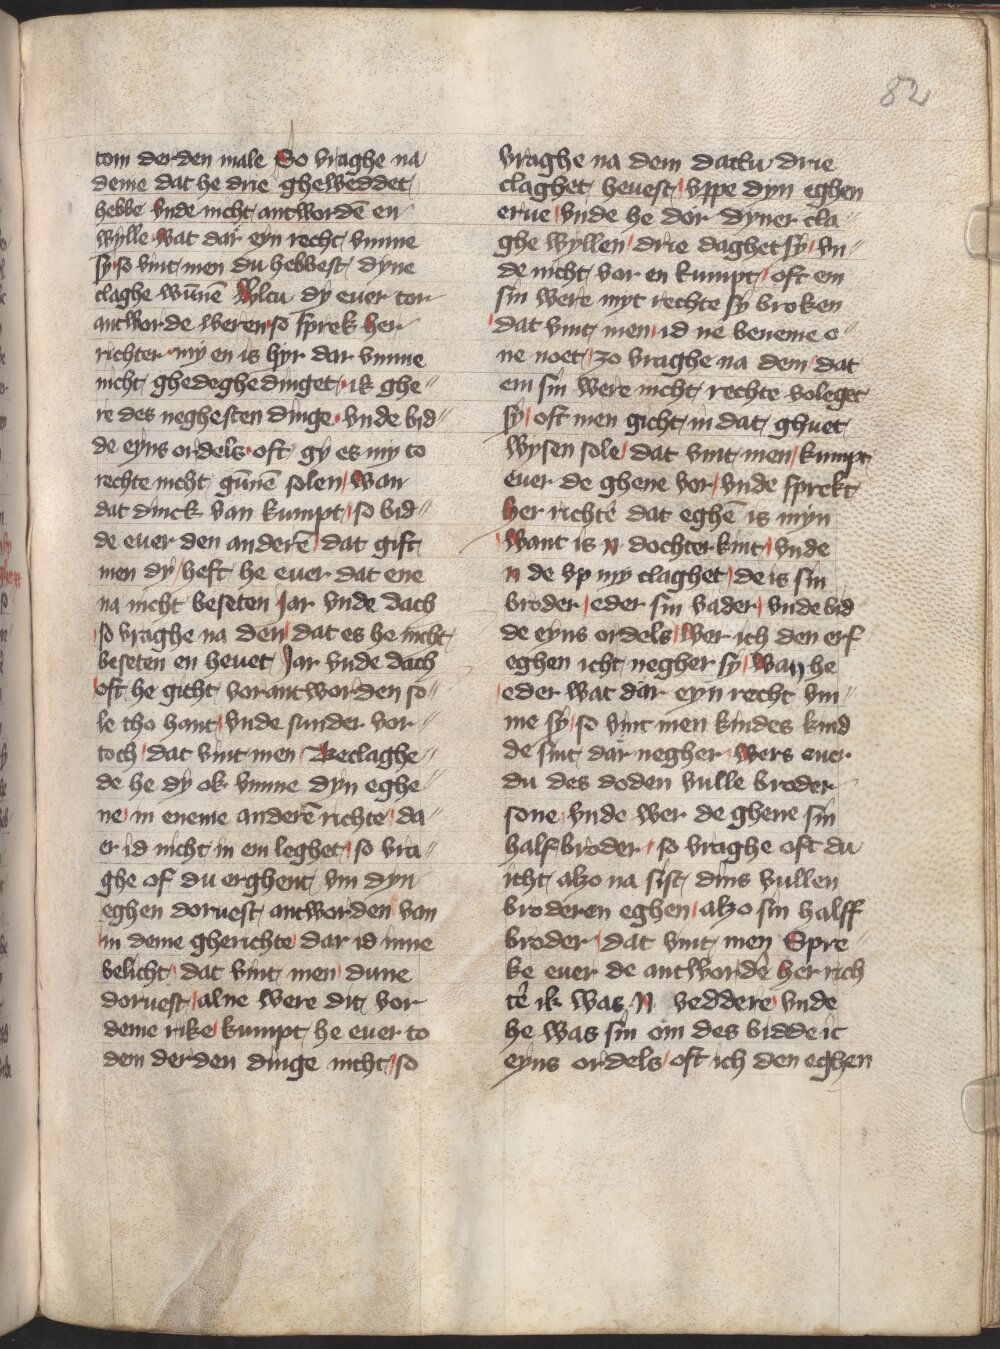 82
tom derden male So vraghe na
deme dat he drie gheweddet
hebbe vnde nicht antwordē en
wylle wat dar eyn recht vmme
sy so vint men du hebbest dyne
claghe wūnē Wltu dy euer tor
antworde weren so sprek her
richter my en is hyr dar vmme
nicht ghedeghedinget ik ghe〃
re des neghesten dinge vnde bid〃
de eyns ordels oft gy es my to
rechte nicht gūnē solen wan
dat dinck van kumpt so bid〃
de euer den anderē dat gift
men dy heft he euer dat ene
na nicht beseten Jar vnde dach
so vraghe na den dat es he nicht
beseten en heuet Jar vnde dach
oft he gicht vorantworden so〃
le tho hant vnde sunder vor〃
toch dat vint men Beclaghe〃
de he dy ok vmme dyn eghe〃
ne in eneme anderē richte da〃
er id nicht in em leghet so vra〃
ghe of du erghent vm dyn
eghen doruest antworden van
in deme gherichte dar id inne
belicht dat vint men dune
doruest alne were dit vor
deme rike kumpt he euer to
dem derden dinge nicht so
vraghe na dem dattu drie
claghet heuest vppe dyn eghen
erue vnde he dor dyner cla
ghe wyllen drie daghet sy vn〃
de nicht vor en kumpt oft em
sin were myt rechte sy broken
dat vint men id ne beneme e〃
ne noet zo vraghe na dem dat
em sin were nicht rechte voleget
sy oft men gicht in dat ghuet
wysen sole dat vint men kumpt
euer de ghene vor vnde sprekt
her richtē dat eghē is myn
want is N dochter kint vnde
N de vp my claghet de is sin
broder eder sin vader vnde bid
de eyns ordels Wer ich den erf
eghen icht negher sy wan he
eder wat dar eyn recht vm〃
me sy so vint men kindes kind
de sint dar negher Wers euer
du des doden vulle broder
sone vnde wer de ghene sin
halfbroder so vraghe oft du
icht alzo na sist dins vullen
broderen eghen alzo sin halff
broder dat vint men Spre〃
ke euer de antwordē her rich
tē ik was N veddere vnde
he was sin om des bidde ic
eyns ordels oft ich den eghen